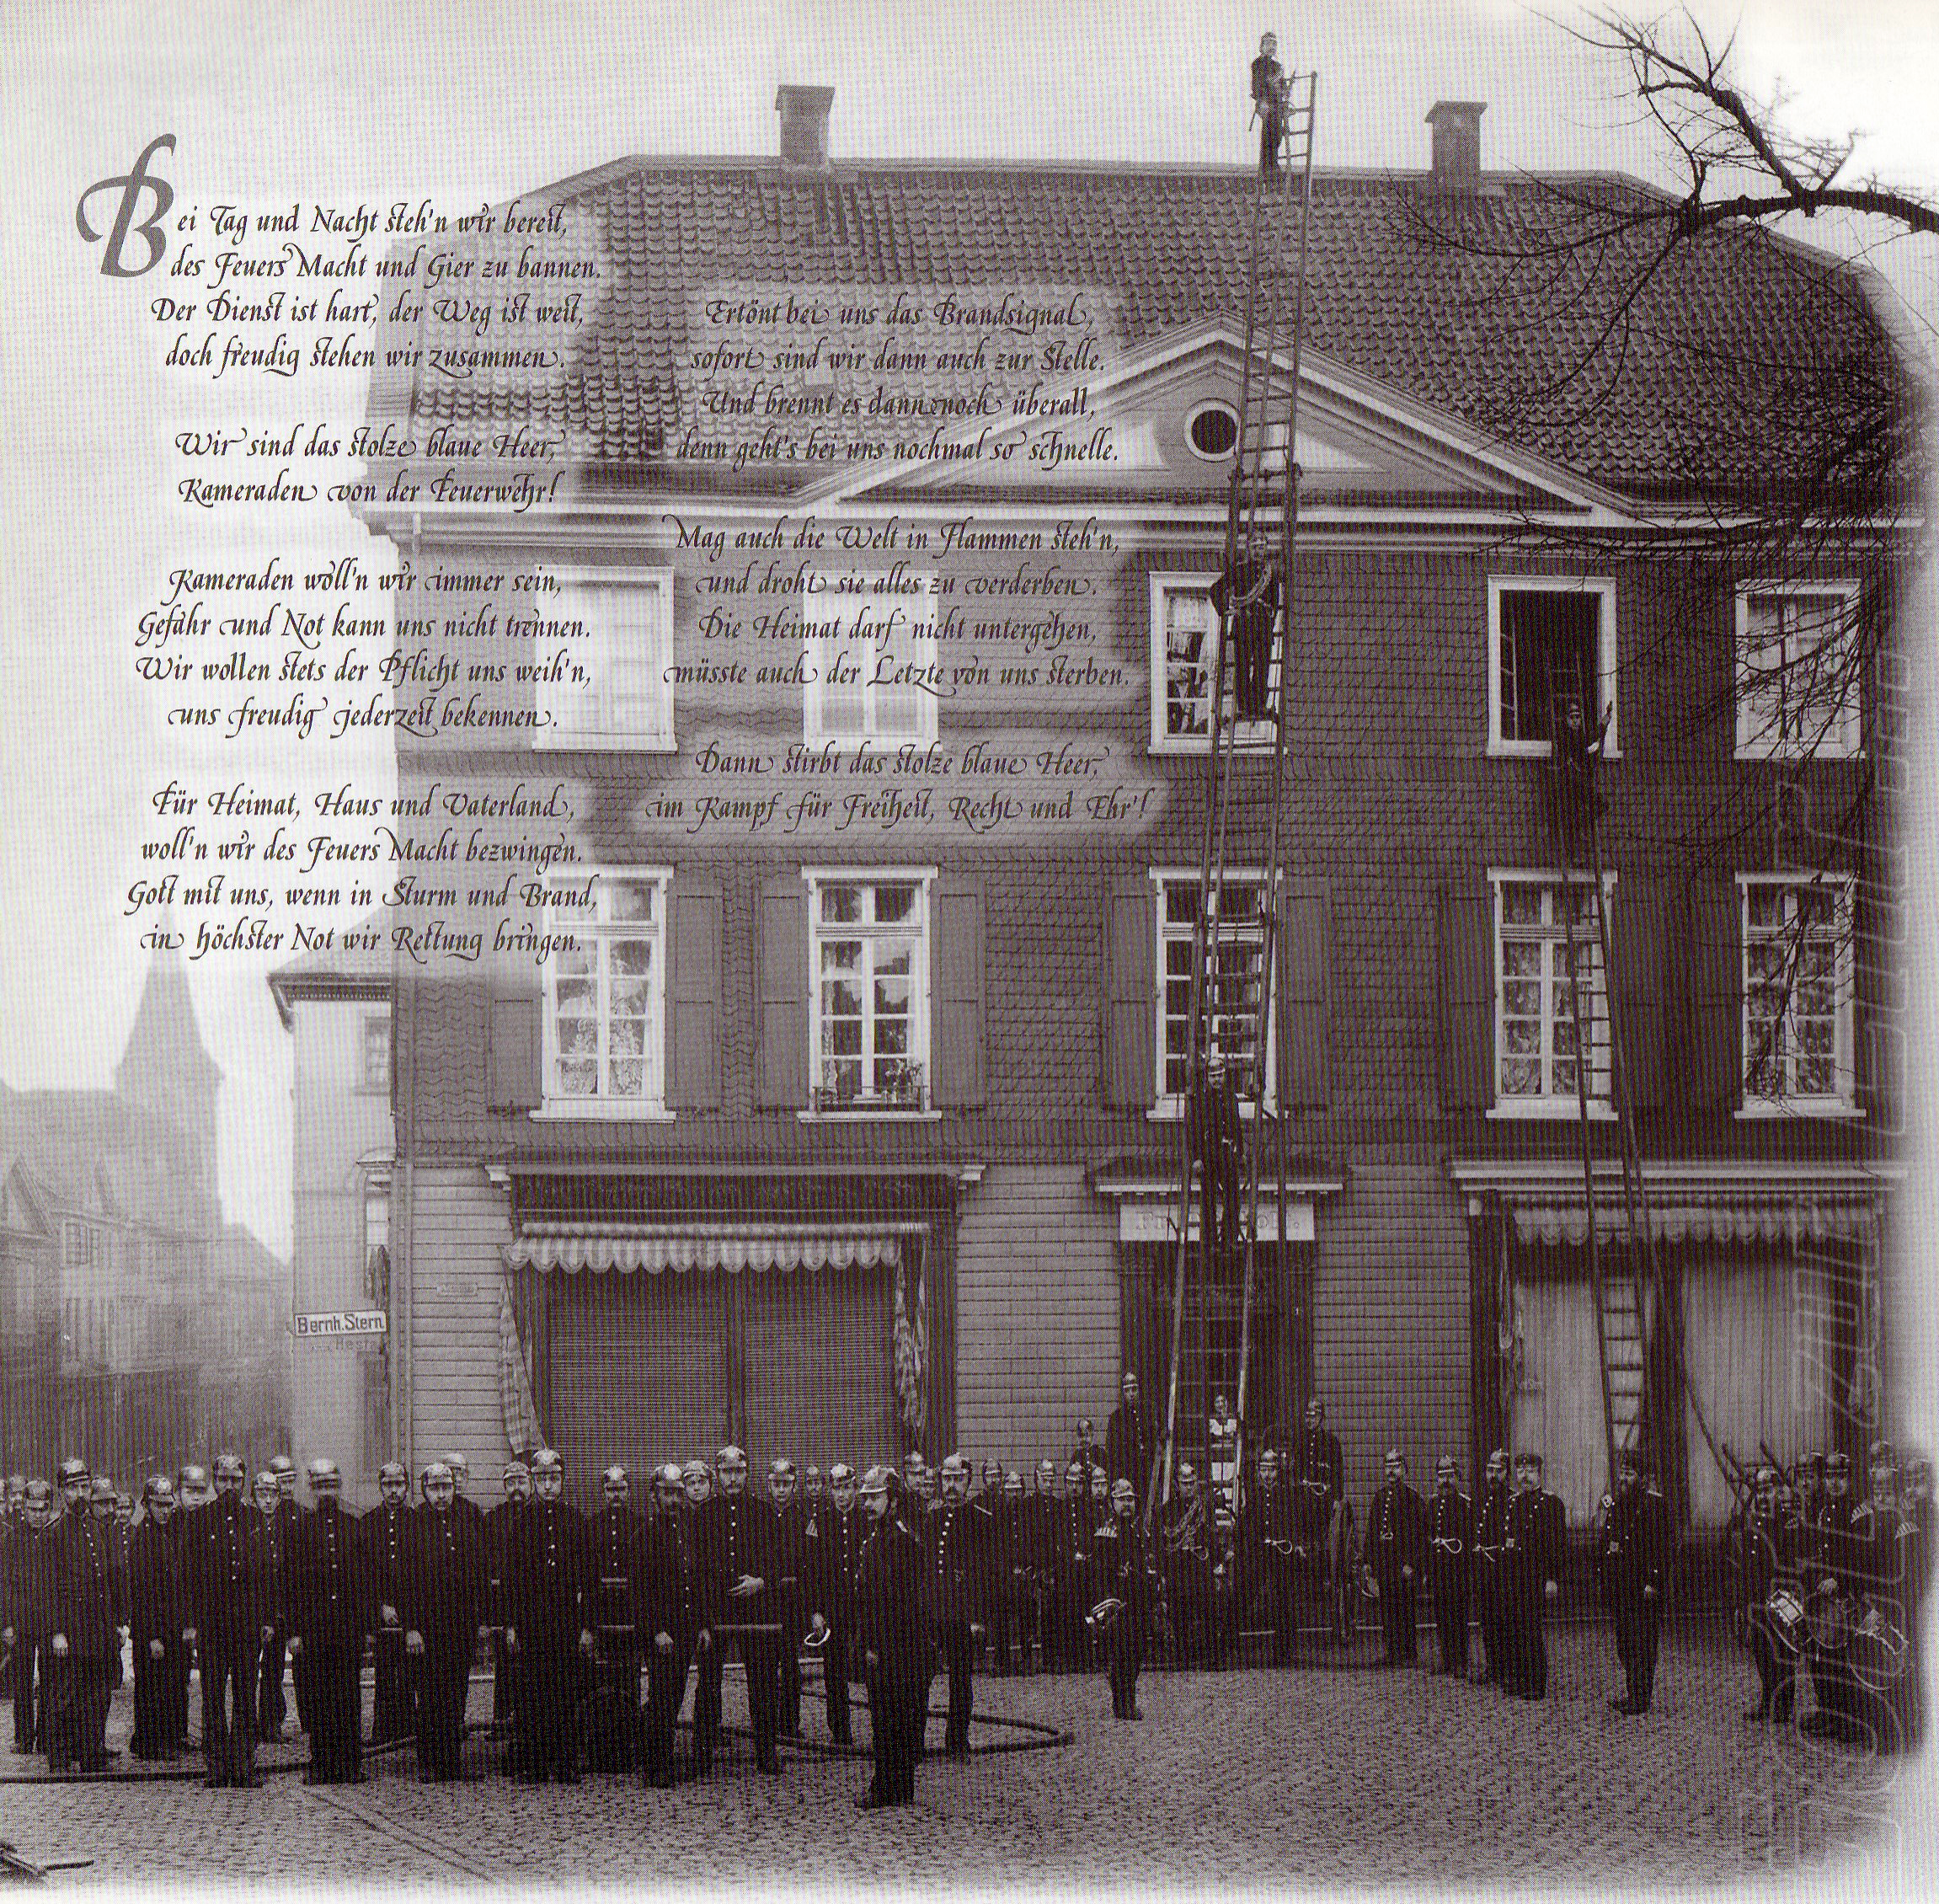 Bei Tag und Nacht steh'n wir bereit,
des Feuers Macht und Gier zu bannen.
Der Dienst ist hart, der Weg ist weit,
doch freudig stehen wir zusammen.
Wir sind das stolze blaue Heer,
Kameraden von der Feuerwehr!
Kameraden woll'n wir immer sein,
Gefahr und Not kann uns nicht trennen.
Wir wollen stets der Pflicht uns weih'n,
uns freudig jederzeit bekennen.
Für Heimat, Haus und Vaterland,
woll'n wir des Feuers Macht bezwingen.
Gott mit uns, wenn in Sturm und Brand,
in höchster Not wir Rettung bringen.
Ertönt bei uns das Brandsignal,
sofort sind wir dann auch zur Stelle.
Und brennt es dann noch überall,
dann geht's bei uns nochmal so schnelle.
Mag auch die Welt in Flammen steh'n,
und droht sie alles zu verderben.
Die Heimat darf nicht untergehen,
müsste auch der Letzte von uns sterben.
Dann stirbt das stolze blaue Heer,
im Kampf für Freiheit, Recht und Ehr'!
Bernh. Stern